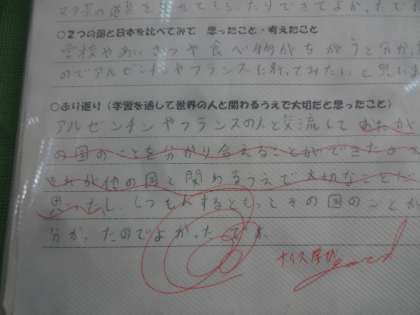 ○2つの国と日本を比べてみて 思ったこと・考えたこと
学校やあいさつや食べ物がちがうと分かった
のでアルゼンチンやフランスに行ってみたいと思いま
○ふり返り（学習を通して世界の人と関わるうえで大切だと思ったこと）
アルゼンチンやフランスの人と交流して おたがい
の国のことを分かり合えることができたので
それが他の国と関わるうえで大切なことだ
思ったし、しつもんするともっとその国のことが
分かったのでよかったです。
ナイス
good